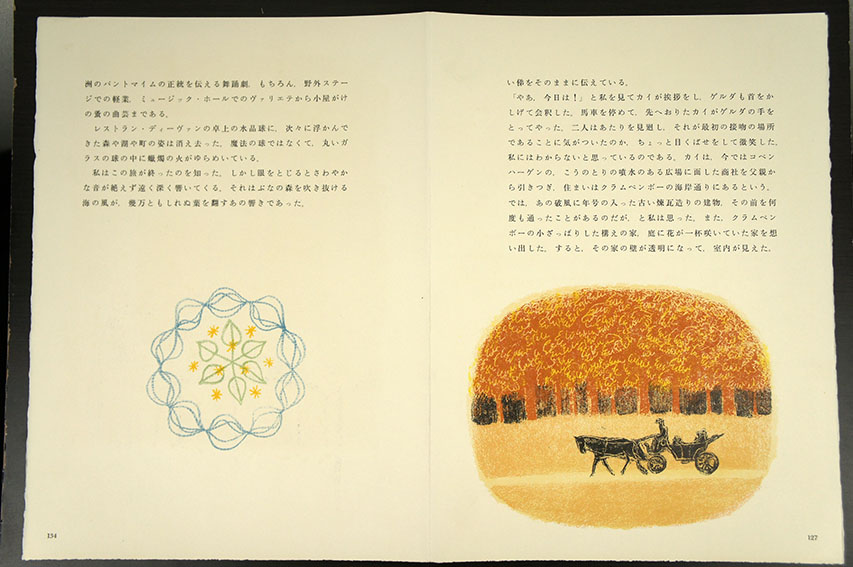 洲のパントマイムの正統を伝える舞踊劇。もちろん，野外ステー
ジでの軽業，ミュージック・ホールでのヴァリエテから小屋がけ
の蚤の曲芸まである。
レストラン・ディーヴァンの卓上の水晶球に，次々に浮かんで
きた森や湖や町の姿は消え去った。魔法の球ではなくて，丸いガ
ラスの球の中に蠟燭の火がゆらめいている。
私はこの旅が終ったのを知った。しかし眼をとじるとさわやか
な音が絶えず遠く深く響いてくる。それはぶなの森を吹き抜ける
海の風が，幾万ともしれぬ葉を翻すあの響きであった。
134
い俤をそのままに伝えている。
「やあ，今日は！」と私を見てカイが挨拶をし，ゲルダも首をか
しげて会釈した。馬車を停めて，先へおりたカイがゲルダの手を
とってやった。二人はあたりを見廻し，それが最初の接吻の場所
であることに気がついたのか，ちょっと目くばせをして微笑した。
私にはわからないと思っているのである。カイは，今ではコペン
ハーゲンの，こうのとりの噴水のある広場に面した商社を父親か
ら引きつぎ，住まいはクラムペンボーの海岸通りにあるという。
では，あの破風に年号の入った古い煉瓦造りの建物，その前を何
度も通ったことがあるのだが，と私は思った。また，クラムペン
ボーの小ざっぱりした構えの家，庭に花が一杯咲いていた家を想
い出した。すると，その家の壁が透明になって，室内が見えた。
127